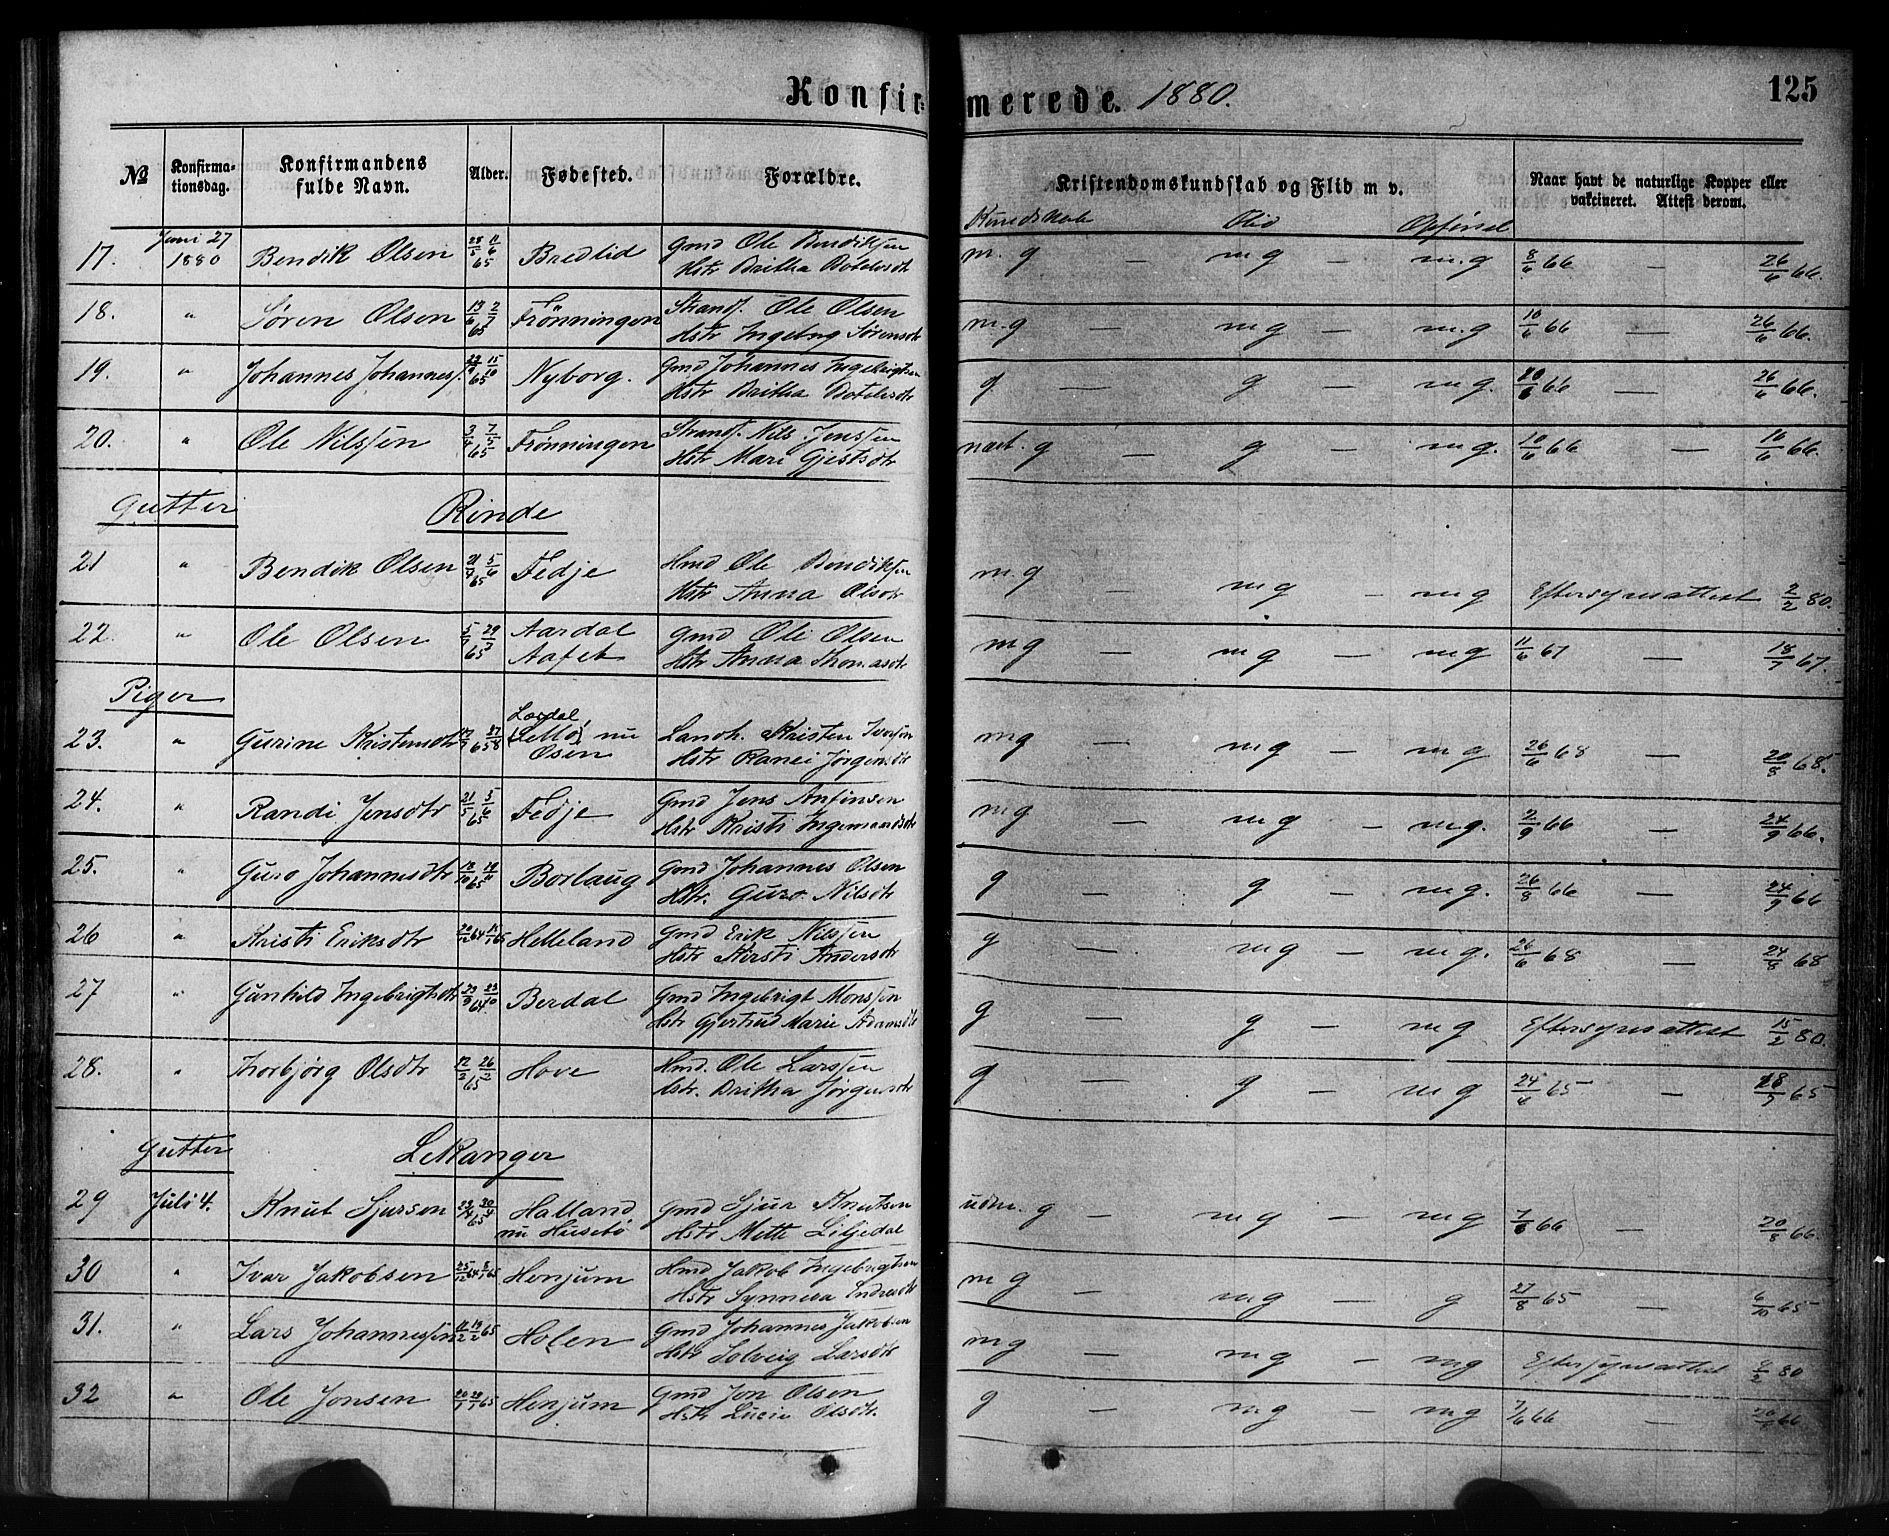 Konfirmerede. 1880.
125
No
Konfirma-
tionsdag.
Konfirmandens
fulde Navn.
Alder.
Fødested.
Forældre.
Kristendomskundskab og Flid m v.
Naar havt de naturlige Kopper eller
vakcineret. Attest derom.
Kundskab Flid Opførsel
17. Juni 27 1880 Bendik Olsen 28/5 11/6 65 Bredlid Gmd Ole Bendiksen
Hstr Britha Botolvsdtr m. g — mg — m.g 8/6 66 — 26/6 66.
18. " Søren Olsen 13/6 2/7 65 Frönningen Strands. Ole Olsen
Hstr Ingeborg Sørensdtr m.g — mg — m.g 10/6 66 — 26/6 66.
19. " Johannes Johannes. 15/10 65 Nyborg. Gmd Johannes Ingebrigtsen
Hstr Britha Botolvsdtr g — g — mg. 66 — 26/6 66.
20. " Ole Nilssen 3/4 7/5 65 Frönningen Strands. Nils Jenssen
Hstr Mari Gjestsdtr næst. g — g — mg. 10/6 66 — 16/6 66.
Gutter Rinde
21 " Bendik Olsen 21/4 5/6 65 Fedje Hmd Ole Bendiksen
Hstr Anna Olsdtr m.g mg — mg Eftersynsattest 2/2 80.
22. " Ole Olsen 65 Aardal
Aafet Gmd Ole Olsen
Hstr Anna Thomasdtr mg — mg — mg 11/6 67 — 18/7 67.
Piger
23. " Gurine Kristensdtr 65 Lærdal,
nu
Olsen Landh. Kristen Iversen
Hstr Ranei Jörgensdtr mg — mg — mg 26/6 68 20/8 68.
24. " Randi Jensdtr 21/5 5/6 65 Fedje Gmd Jens Anfinsen
Hstr Kristi Ingemundsdtr mg — mg — mg. 2/9 66 — 24/9 66.
25. " Guro Johannesdtr 12/10 65 Borlaug Gmd Johannes Olsen
Hstr. Guro Nilsdtr g — g — mg. 26/8 66 — 24/9 66
26 " Kristi Eriksdtr 64 65 Helleland Gmd Erik Nilssen
Hstr Kirsti Andersdtr g — mg — mg. 26/6 68 — 24/8 68
27 " Gunhild Ingebrigtsdtr 23/9 23/10 64 Berdal Gmd Ingebrigt Monssen
Hstr Gjertrud Marie Adamsdtr g — g — mg Eftersynsattest 15/2 80.
28. " Thorbjörg Olsdtr 12/2 26/2 65 Hove Hmd. Ole Larssen
Hstr. Britha Jørgensdtr g g — mg 24/6 65 — 18/7 65
Gutter Lekanger
29 Juli 4. Knut Sjursen 30/4 65 Halland
nu Husebö Gmd Sjur Knutsen
Hstr Mette Liljedal udm. g — mg — mg 7/6 66 — 20/8 66.
30 " Ivar Jakobsen 25/12 64 65 Henjum Hmd Jakob Ingebrigtsen
Hstr Synneva Endresdtr m g — mg — g 27/8 65 — 6/10 65
31. " Lars Johannessen 65 Holen Gmd Johannes Jakobsen
Hstr Solveig Larsdtr mg — mg — mg Eftersynsattest 2/2 80
32 " Ole Jonsen 65 Henjum Gmd Jon Olsen
Hstr Lucie Olsdtr. g — mg — mg 7/6 66 — 66